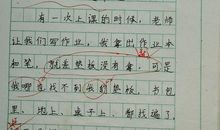 有一次上课的时候，老师
让我们写作业，我拿出作业本
和笔，就垫板没有拿，可是
我哪都找不到我的垫板，书包
里、地上、桌子上，都找遍了